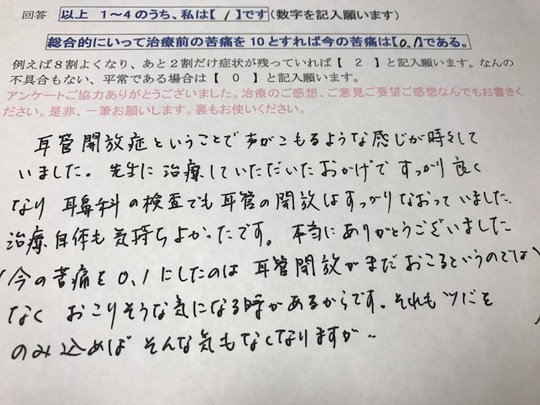 回答 以上 1～4のうち、私は【 1 】です（数字を記入願います）
総合的にいって治療前の苦痛を10とすれば今の苦痛は【0.1】である。
例えば8割よくなり、あと2割だけ症状が残っていれば【 2 】と記入願います。なんの
不具合もない、平常である場合は【 0 】と記入願います。
アンケートご協力ありがとうございました。治療のご感想、ご意見ご要望ご感想なんでもお書きく
ださい。是非、一筆お願いします。裏もお使いください。
耳管開放症ということで声がこもるような感じが時々して
いました。先生に治療していただいたおかげですっかり良く
なり耳鼻科の検査でも耳管の開放はすっかりなおっていました。
治療自体も気持ちよかったです。本当にありがとうございました
（今の苦痛を0.1にしたのは耳管開放がまだおこるというのでは
なくおこりそうな気になる時があるからです。それもツバを
のみ込めばそんな気もなくなりますが〜）